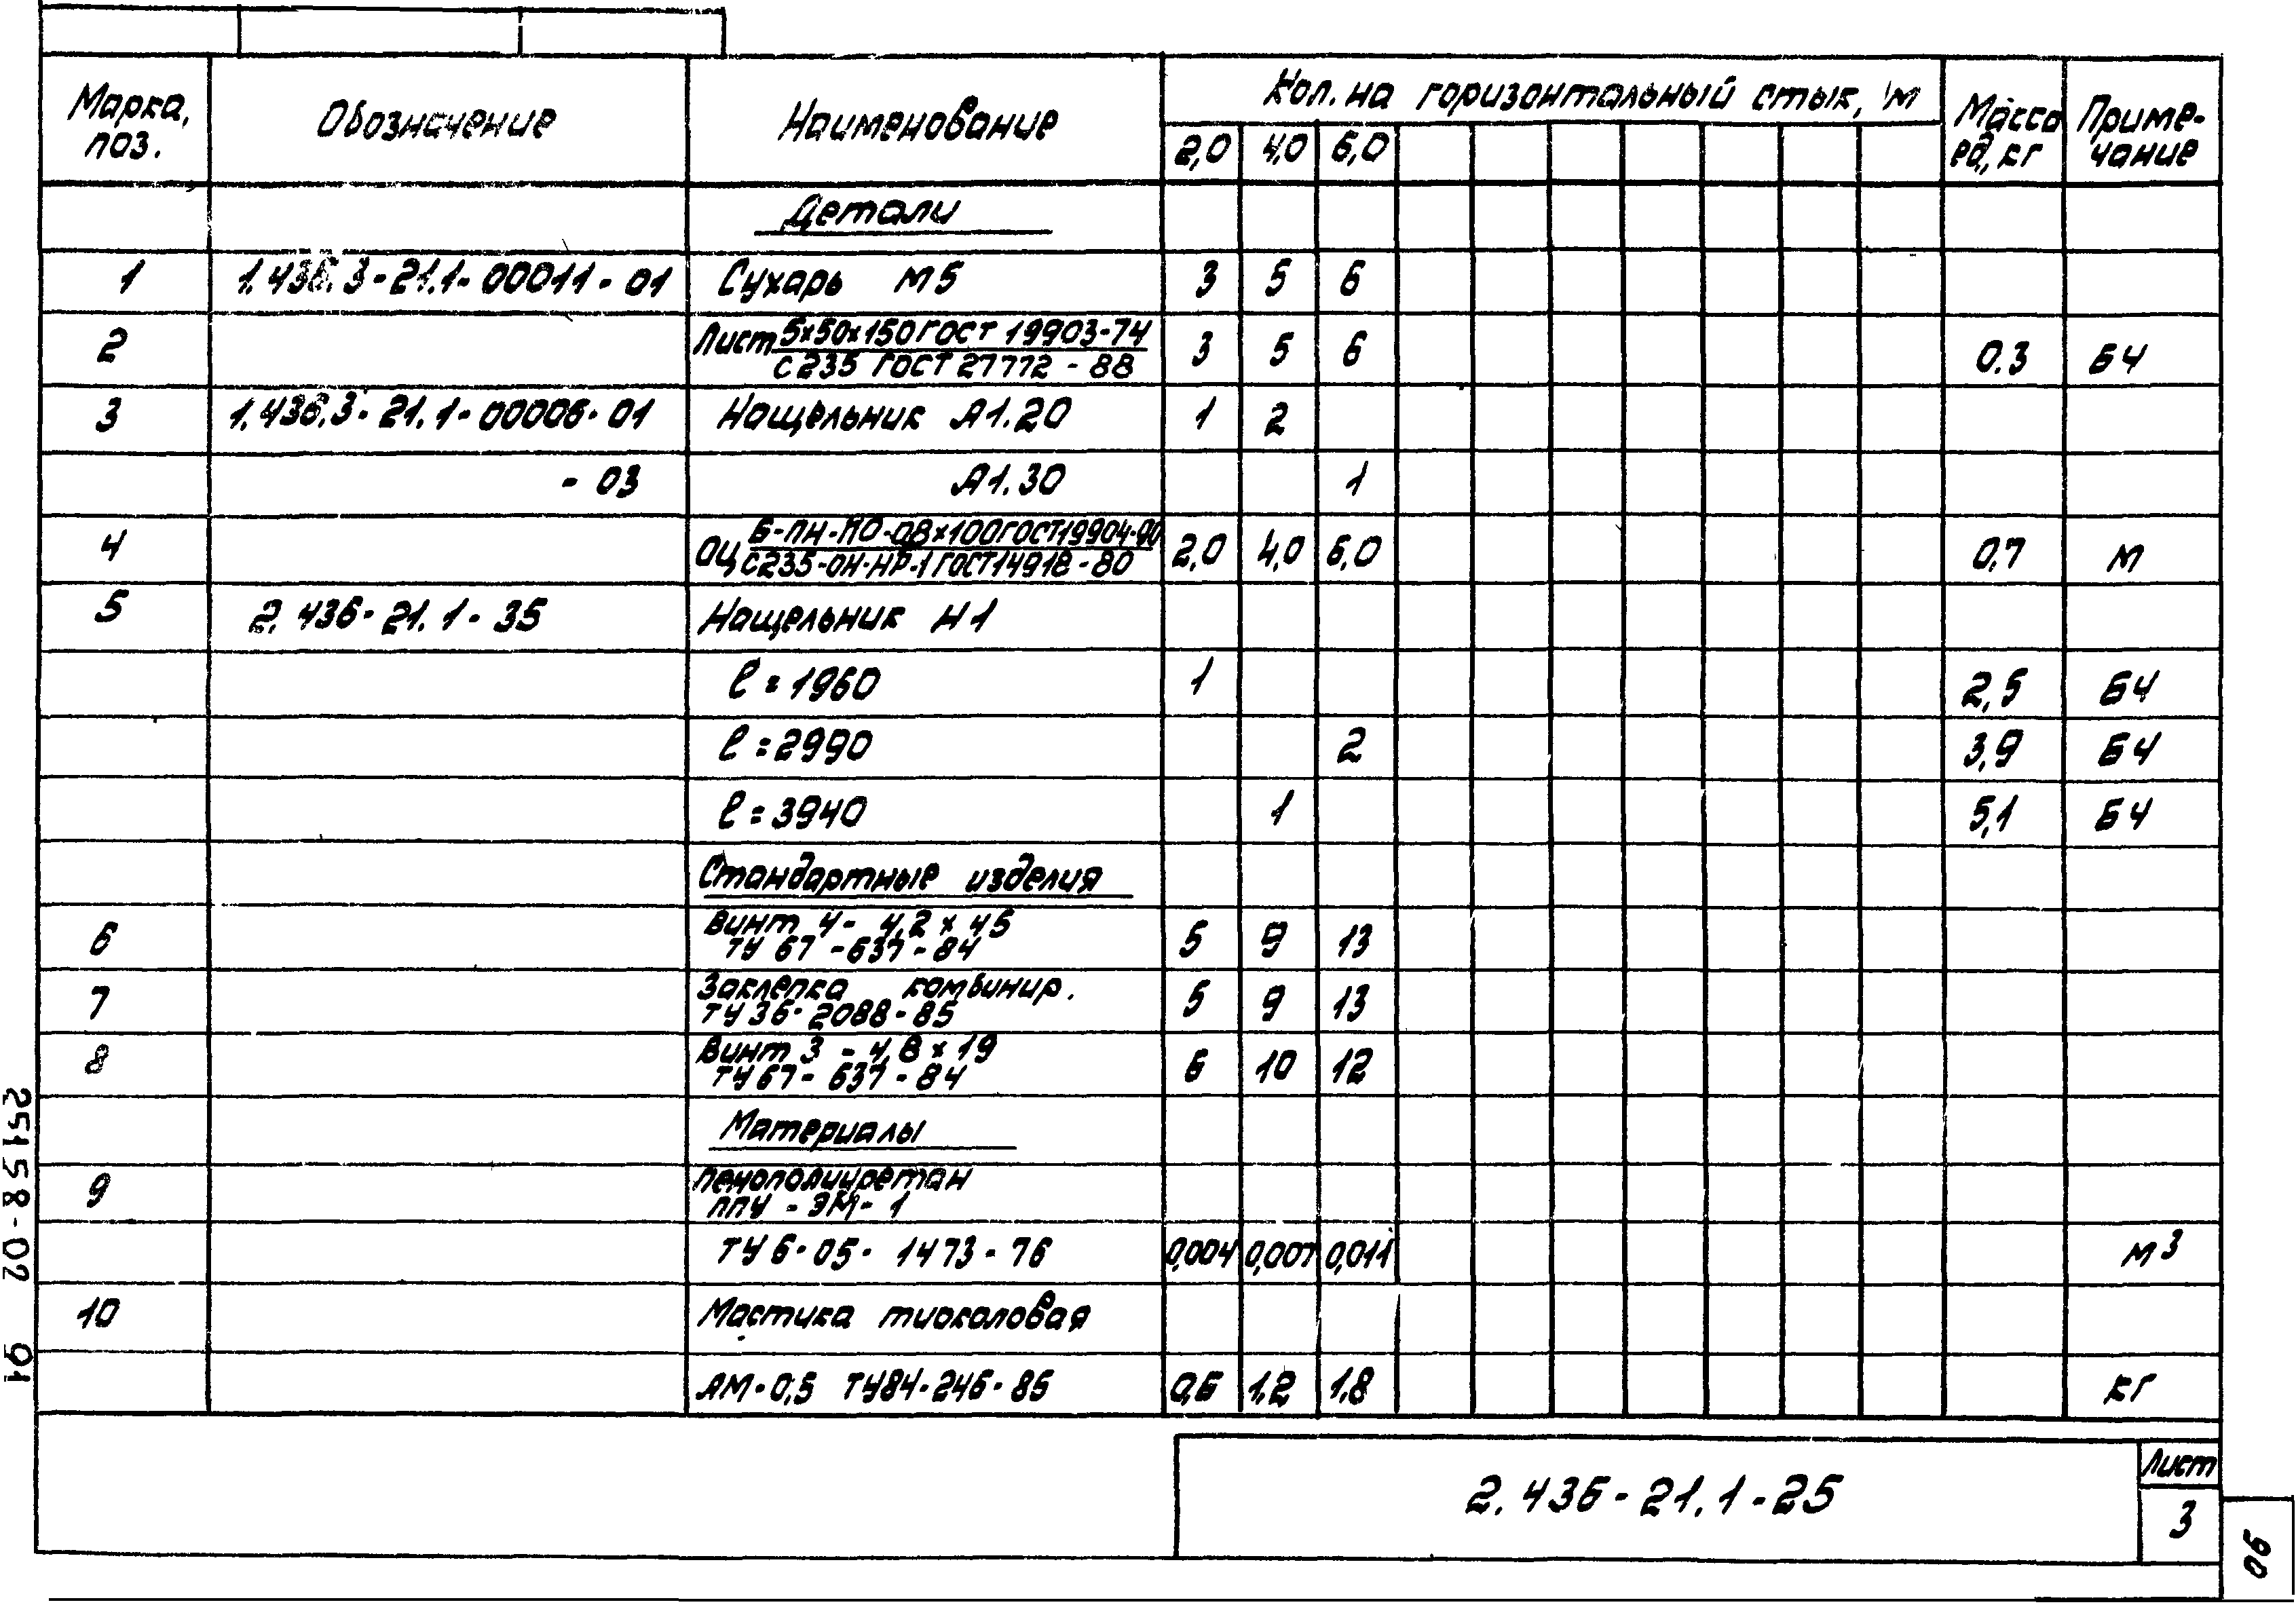 Марка, поз. Обозначение Наименование Кол. на горизонтальный стык, м Масса ед, кг Приме-чание
2,0 4,0 6,0
Детали
1 1.436.3-21.1-00011-01 Сухарь М5 3 5 6
2 Лист 5х50х150 ГОСТ 19903-74 3 5 6 0.3 БЧ
С235 ГОСТ 27772-88
3 1.436.3-21.1-00006-01 Нащельник А1.20 1 2
-03 А1.30 1
4 ОЦ Б-ПН-ПО-08х100 ГОСТ 19904-90 2,0 4,0 6,0 0,7 м
С235-ОН-НР-1 ГОСТ 14918-80
5 2.436-21.1-35 Нащельник Н1
ℓ=1960 1 2,5 БЧ
ℓ=2990 2 3,9 БЧ
ℓ=3940 1 5,1 БЧ
Стандартные изделия
6 Винт 4-4,2х45 5 9 13
ТУ 67-637-84
7 Заклепка комбинир. 5 9 13
ТУ 36-2088-85
8 Винт 3-4,8х19 6 10 12
ТУ 67-637-84
Материалы
9 Пенополиуретан
ППУ-ЭМ-1
ТУ 6-05-1473-76 0,004 0,007 0,011 м³
10 Мастика тиоколовая
АМ-0,5 ТУ84-246-85 0,6 1,2 1,8 кг
2.436-21.1-25
Лист
3
25158-02 91
90